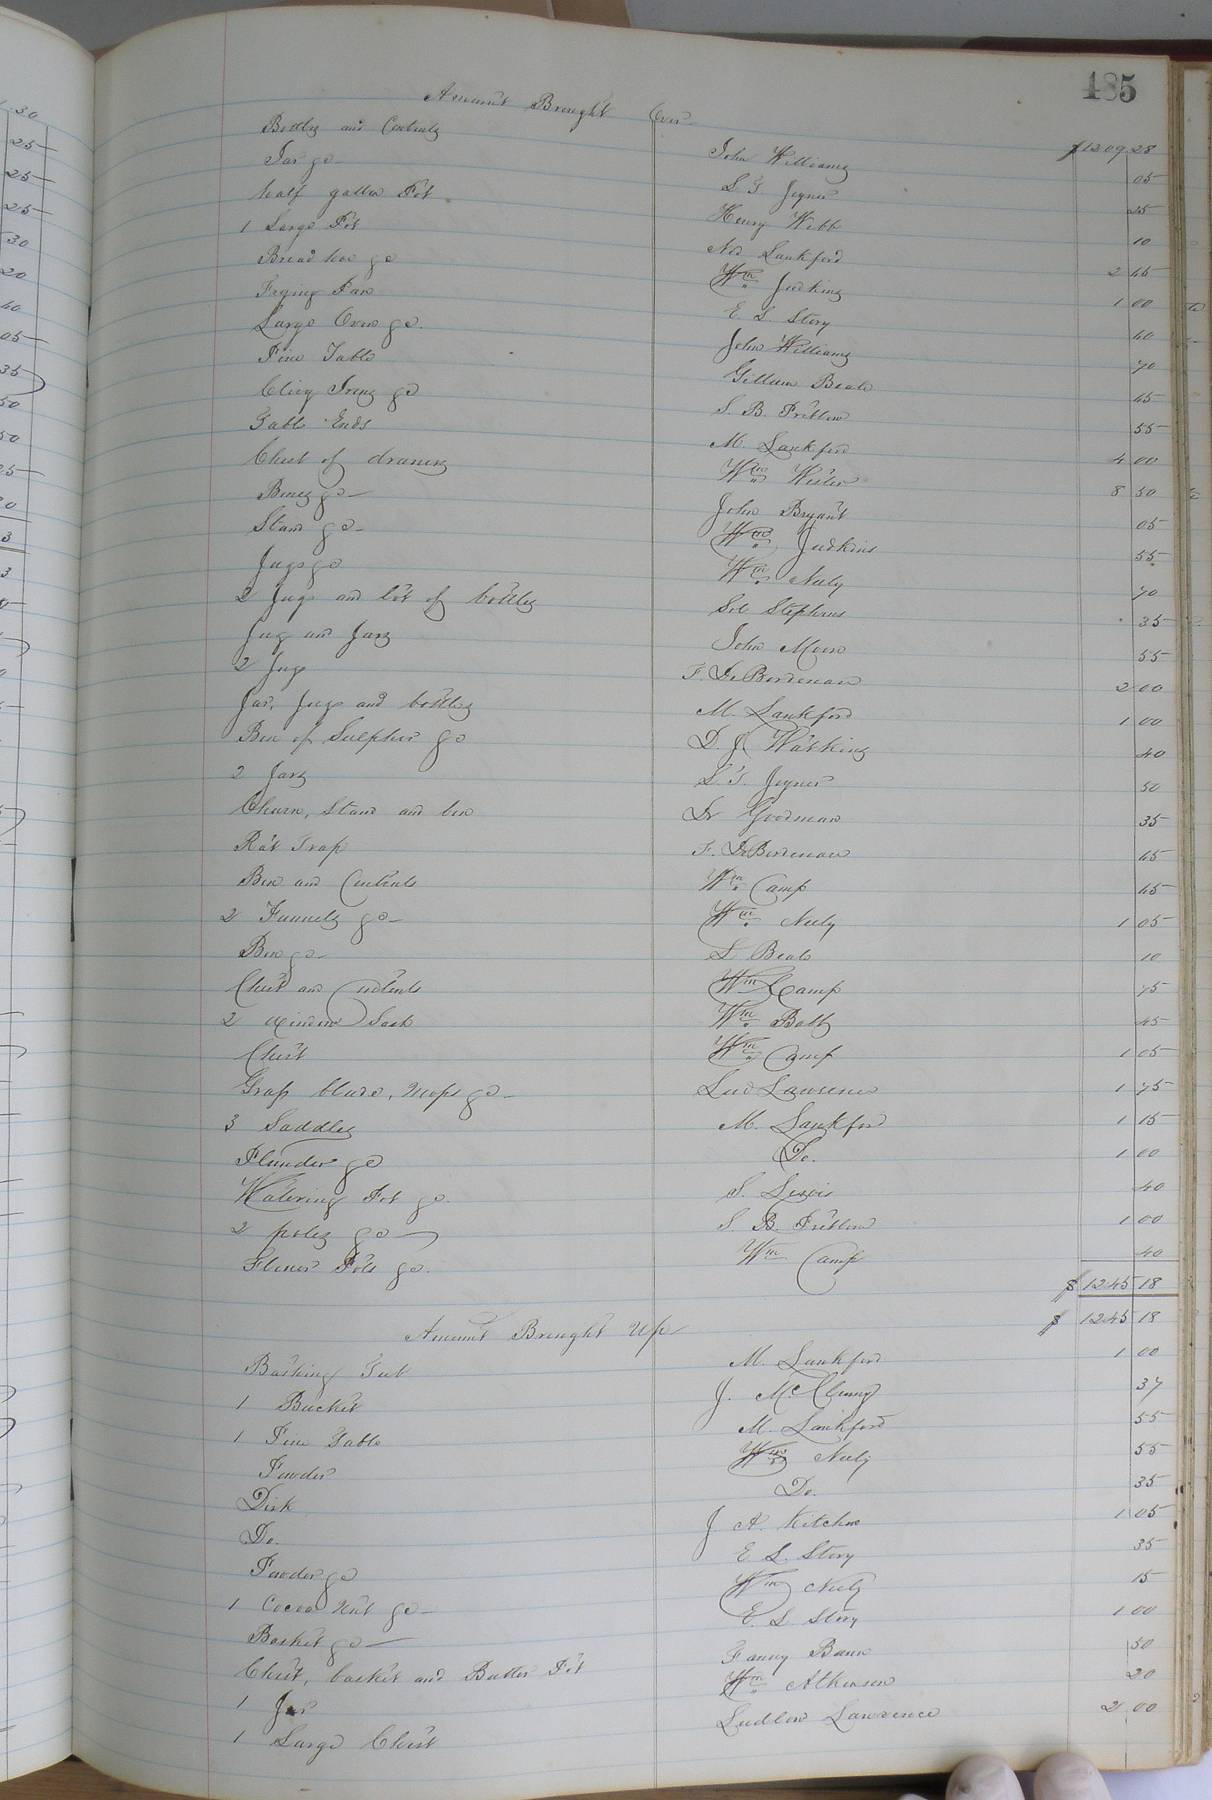 485
Amount Brought Over $1209 28
Bottles and Contents John Williams 05
Jar go L T Joyner 25
half gallon Pot Henry Webb 10
1 Large Pot Ned Lankford 2 45
Bread hoe go Wm Judkins 1 00
Frying Pan E. L. Story 40
Large Oven go. John Williams 70
Pine Table Gillum Beale 45
S. B. Pretlow 55
Table Ends M. Lankford 4 00
Chest of drawers Wm 8 50
go John Bryant 05
Stand go Wm Judkins 55
Jugs go Wm Neely 70
2 Jugs and lot of bottles Sol Stephens 35
Jug and Jars John Moore 55
2 Jugs 2 00
Jar, Jugs and bottles M. Lankford 1 00
Box of Sulpher go D. J. Watkins 40
2 Jars L. T. Joyner 50
Churn, Stand and box Dr Goodman 35
Rat Trap 45
Box and Contents Wm Camp 45
2 Funnels go Wm Neely 1 05
Box go L Beale 10
Chest and Contents Wm Camp 75
2 window Sash Wm 45
Chest Wm Camp 1 05
blade, Mops go Lud Lawrence 1 75
3 Saddles M. Lankford 1 15
go Do. 1 00
Watering Pot go. S. Lewis 40
2 poles go S. B. Pretlow 1 00
Flower Pots go. Wm Camp 40
$1245 18
Amount Brought Up $1245 18
Tub M. Lankford 1 00
1 Bucket J. McClenny 37
1 Pine Table M. Lankford 55
Wm Neely 55
Desk Do. 35
Do. J A. Kitchen 1 05
go E L. Story 35
1 Cocoa Nut go Wm Neely 15
Basket go E. L Story 1 00
Chest, basket and Butter Pot Fanny Bann 50
1 Jar Wm Atkinson 20
1 Large Chest Ludlow Lawrence 2 00